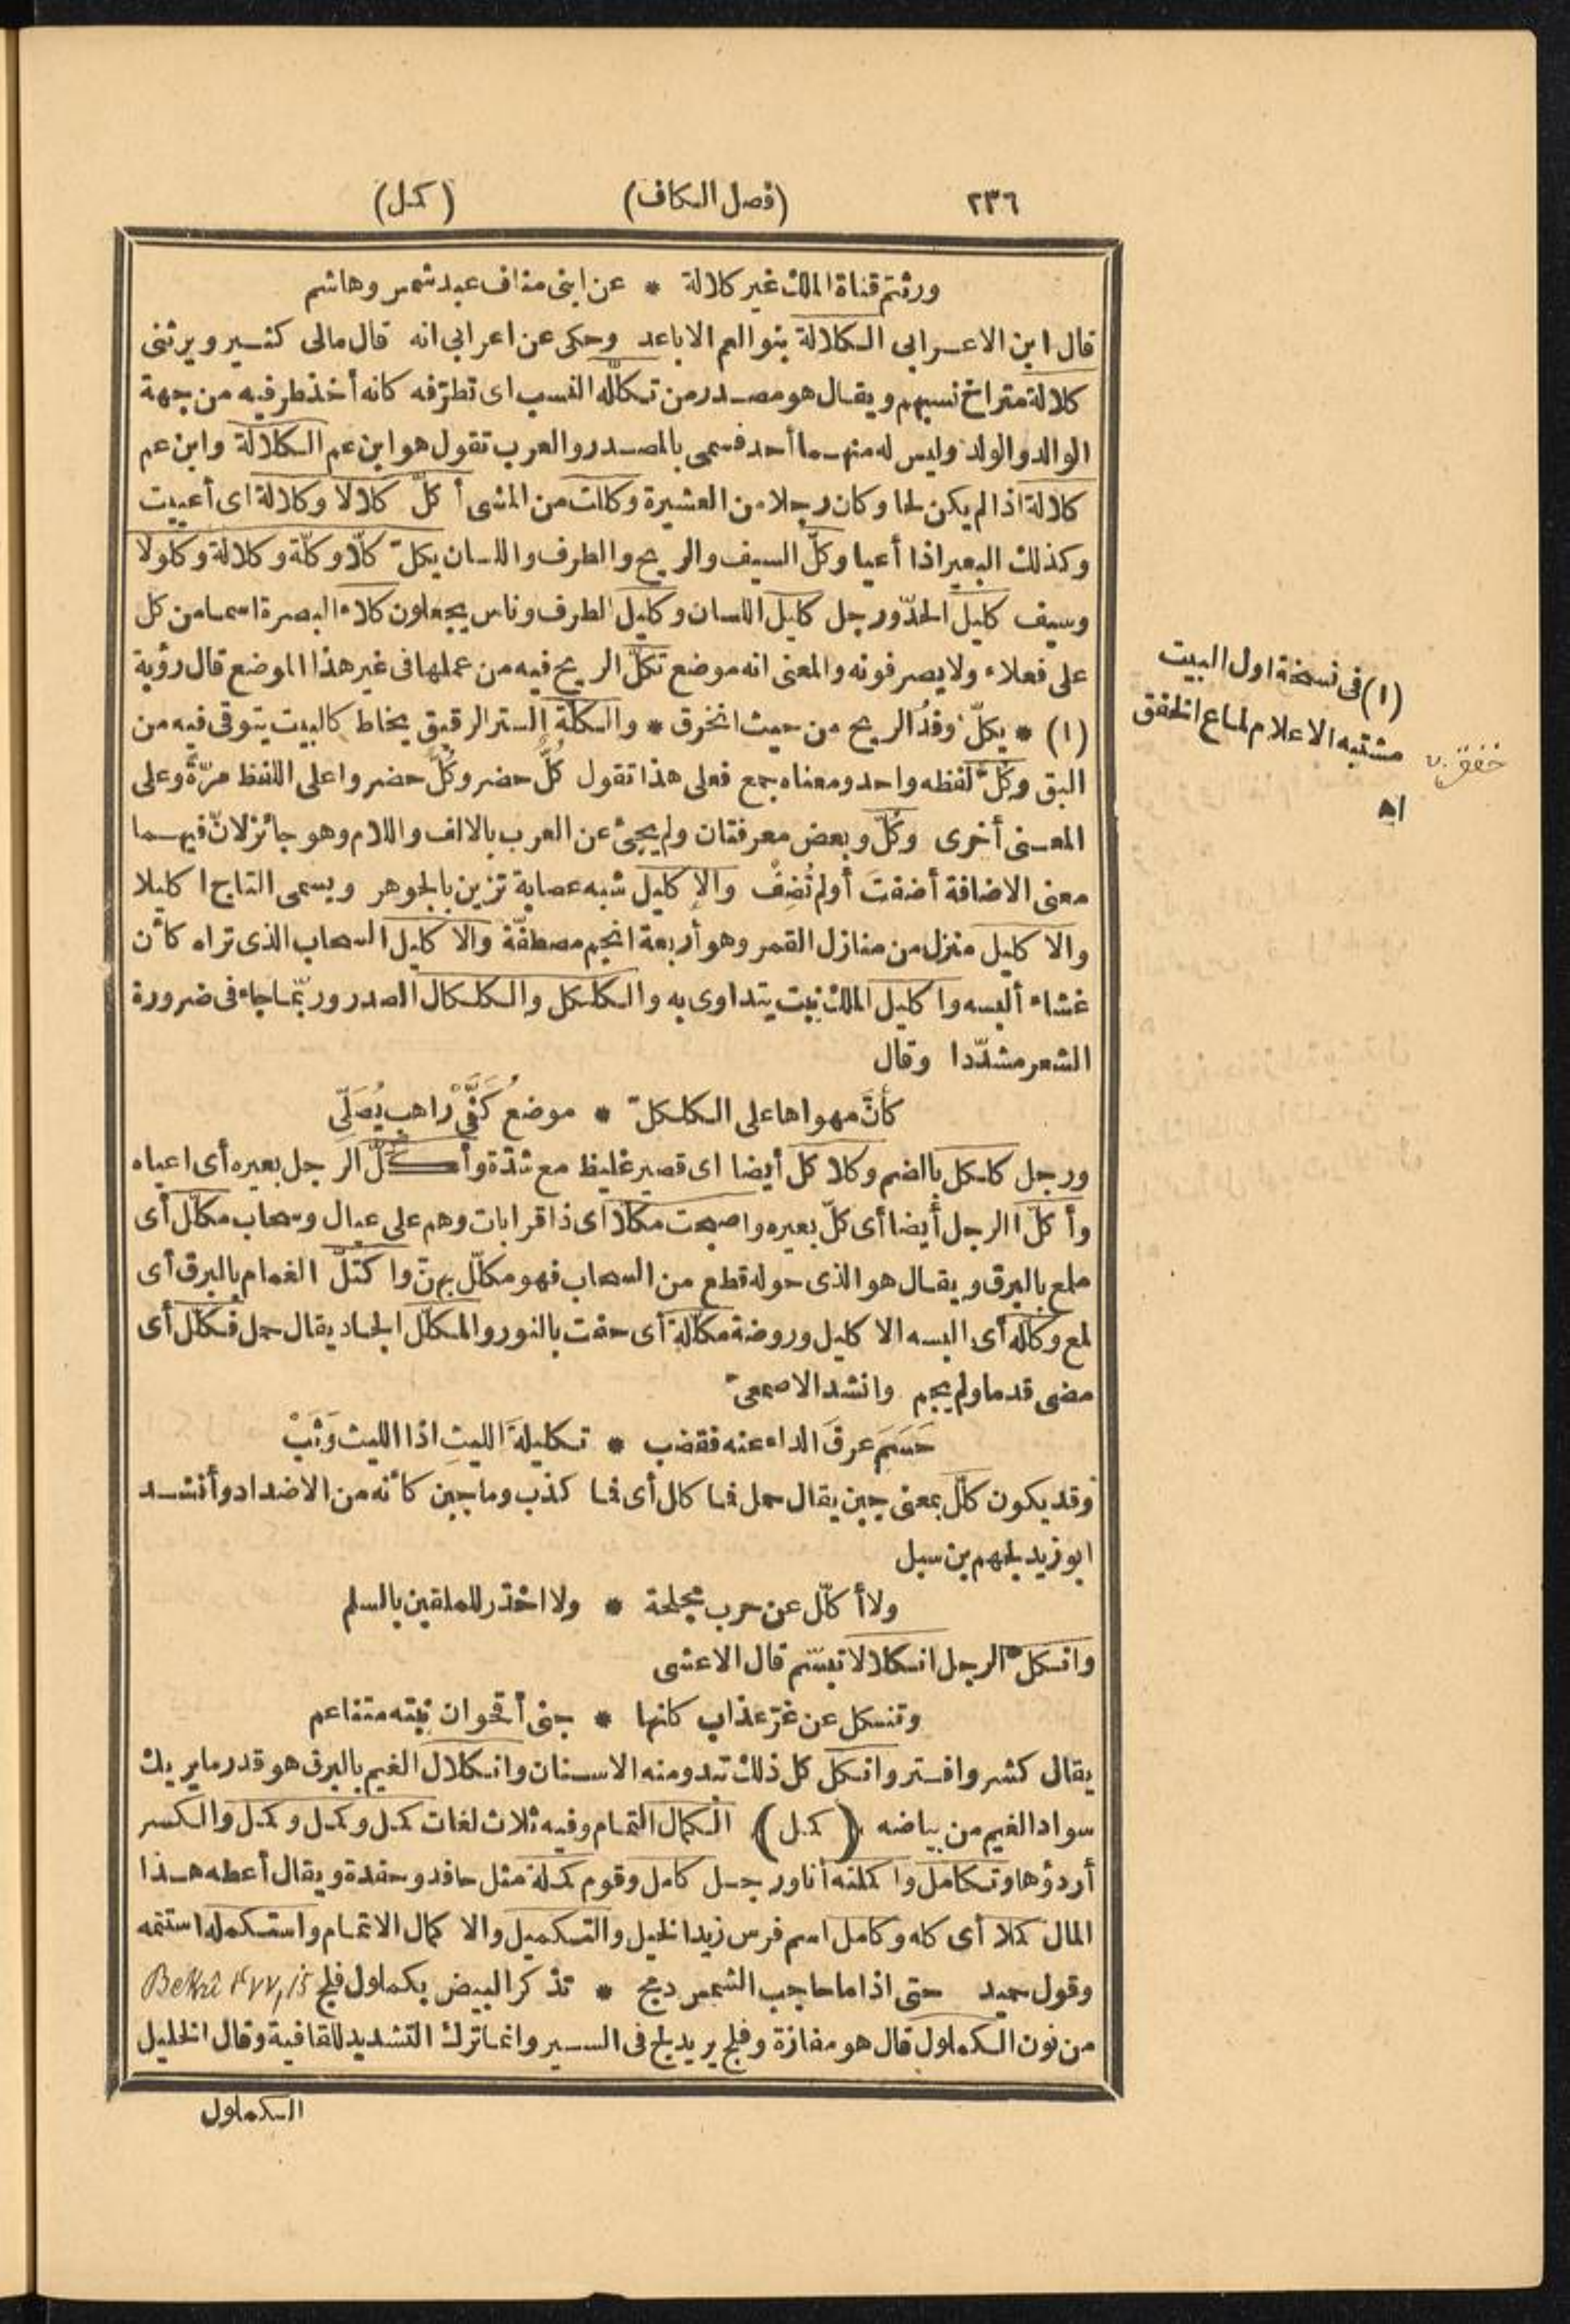 ٢٣٦ (فصل الكاف) (كمل)
ورثتم قناة الملك غير كلالة * عن ابنى مناف عبد شمس وهاشم
قال ابن الاعرابى الكلالة بنو العم الاباعد وحكى عن اعرابى انه قال مالى كثير ويرثنى
كلالة متراخ نسبهم ويقال هو مصدر من تكلّله النسب اى تطرّفه كانه أخذ طرفيه من جهة
الوالد والولد وليس له منهما أحد فسمى بالمصدر والعرب تقول هو ابن عم الكلالة وابن عم
كلالة اذا لم يكن لحا وكان رجلا من العشيرة وكللت من المشى أكلّ كلالا وكلالة اى أعييت
وكذلك البعير اذا أعيا وكلّ السيف والريح والطرف واللسان يكلّ كلّا وكلّة وكلالة وكلولا
وسيف كليل الحدّ ورجل كليل اللسان وكليل الطرف وناس يجعلون كلاء البصرة اسما من كل
على فعلاء ولا يصرفونه والمعنى انه موضع تكلّ الريح فيه من عملها فى غير هذا الموضع قال رؤبة
(١) * يكلّ وفدُ الريح من حيث انخرق * والكلّة الستر الرقيق يخاط كالبيت يتوقى فيه من
البق وكُلّ لفظه واحد ومعناه جمع فعلى هذا تقول كُلٌّ حضر وكُلٌّ حضروا على اللفظ مرّةً وعلى
المعنى أخرى وكُلّ وبعض معرفتان ولم يجئ عن العرب بالالف واللام وهو جائز لانّ فيهما
معنى الاضافة أضفتَ أولم تُضِفْ والإكليل شبه عصابة تزين بالجوهر ويسمى التاج اكليلا
والاكليل منزل من منازل القمر وهو أربعة انجم مصطفّة والاكليل السحاب الذى تراه كأن
غشاء ألبسه واكليل الملك نبت يتداوى به والكلكل والكلكال الصدر وربّما جاء فى ضرورة
الشعر مشدّدا وقال
كأنَّ مهواها على الكلكلّ * موضعُ كَفَّىْ راهبٍ يُصَلّى
ورجل كلكل بالضم وكلاكل أيضا اى قصير غليظ مع شدّة وأكلّ الرجل بعيره أى اعياه
وأكلّ الرجل أيضا أى كلّ بعيره واصبحت مكلّا اى ذا قرابات وهم على عيال وسحاب مكلّل أى
ملمع بالبرق ويقال هو الذى حوله قطع من السحاب فهو مكلّل بهنّ واكتلّ الغمام بالبرق أى
لمع وكلّله أى البسه الاكليل وروضة مكلّلة أى حفت بالنور والمكلّل الجاد يقال حمل فكلّل أى
مضى قدما ولم يخم وانشد الاصمعىّ
حَسَمَ عرقَ الداء عنه فقضب * تكليلةَ الليثِ اذا الليث وَثَبْ
وقد يكون كلّل بمعنى جبن يقال حمل فما كلل أى فما كذب وما جبن كأنه من الاضداد وأنشد
ابو زيد لجهم بن سبل
ولا أكلّل عن حرب مجلحة * ولا اخذر للملقين بالسلم
وانكلّ الرجل انكلالا تبسّم قال الاعشى
وتنكل عن غرّ عذاب كانها * جنى أقحوان نبته متناعم
يقال كشر وافتر وانكل كل ذلك تبدو منه الاسنان وانكلال الغيم بالبرق هو قدر ما يريك
سواد الغيم من بياضه (كمل) الكمال التمام وفيه ثلاث لغات كمل وكمل وكمل والكسر
أردؤها وتكامل واكملته أنا ورجل كامل وقوم كملة مثل حافد وحفدة ويقال أعطه هذا
المال كملا أى كله وكامل اسم فرس زيد الخيل والتكميل والاكمال الاتمام واستكمله استتمه
وقول حميد حتى اذا ما حاجب الشمس دمج * تذكر البيض بكملول فلج
من نون الكملول قال هو مفازة وفلج يريد لج فى السير وانما ترك التشديد للقافية وقال الخليل
الكملول
(١) فى نسخة اول البيت
مشتبه الاعلام لماع الخفق
اه